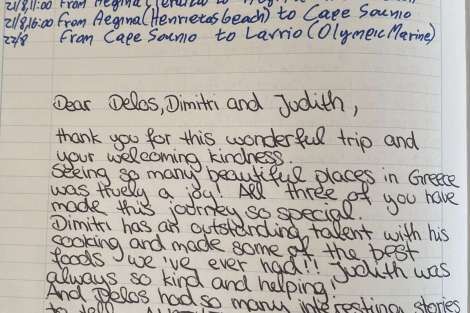 21/8,11:00 from Aegina
21/8,16:00 from Aegina (Henrietas beach) to Cape Sounio
22/8 from Cape Sounio to Lavrio (Olympic Marine)
Dear Delos, Dimitri and Judith,
thank you for this wonderful trip and
your welcoming kindness.
Seeing so many beautiful places in Greece
was truely a joy! All three of you have
made this jo͏rney so special.
Dimitri has an outstanding talent with his
cooking and made some of the best
foods we 've ever had!! Judith was
always so kind and helping!
And Delos had so many interesting stories
to tell.